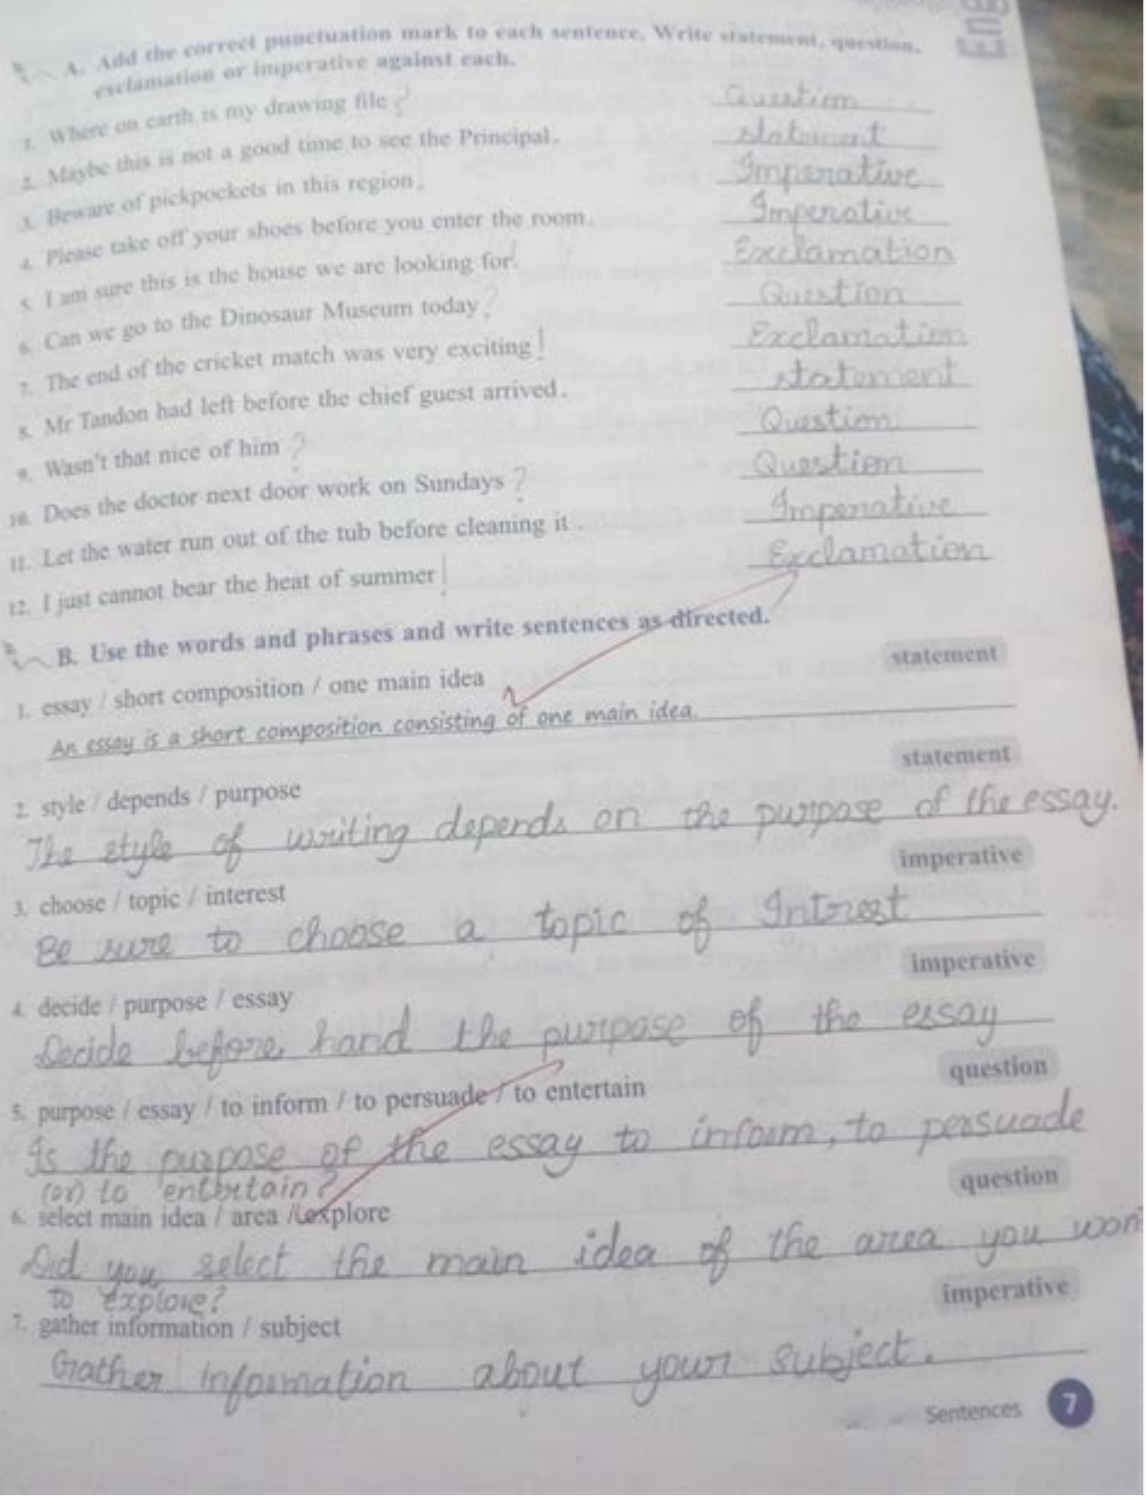 Eng
A. Add the correct punctuation mark to each sentence. Write statement, question,
exclamation or imperative against each.
1. Where on earth is my drawing file? Question
2. Maybe this is not a good time to see the Principal. statement
3. Beware of pickpockets in this region. Imperative
4. Please take off your shoes before you enter the room. Imperative
5. I am sure this is the house we are looking for! Exclamation
6. Can we go to the Dinosaur Museum today? Question
7. The end of the cricket match was very exciting! Exclamation
8. Mr Tandon had left before the chief guest arrived. statement
9. Wasn't that nice of him? Question
10. Does the doctor next door work on Sundays? Question
11. Let the water run out of the tub before cleaning it. Imperative
12. I just cannot bear the heat of summer! Exclamation
B. Use the words and phrases and write sentences as directed.
1. essay / short composition / one main idea statement
An essay is a short composition consisting of one main idea.
2. style / depends / purpose statement
The style of writing depends on the purpose of the essay.
3. choose / topic / interest imperative
Be sure to choose a topic of Intrest
4. decide / purpose / essay imperative
Decide before hand the purpose of the essay
5. purpose / essay / to inform / to persuade / to entertain question
Is the purpose of the essay to inform, to persuade
(or) to entertain?
6. select main idea / area / explore question
Did you select the main idea of the area you won
to explore?
7. gather information / subject imperative
Gather information about your subject.
Sentences 7